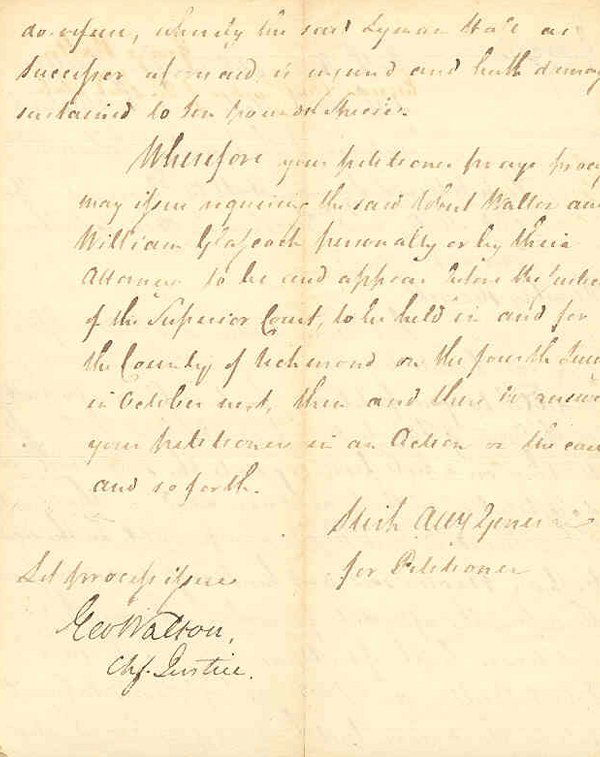 do refuse, whereby the said Lyman Hall as
Successor aforesaid is injured and hath damage
sustained to ten pounds Specie.
Wherefore your petitioner prays process
may issue requiring the said Robert Walton and
William Glascock personally or by their
Attorney to be and appear before the
of the Superior Court, to be held in and for
the County of Richmond on the fourth Tuesday
in October next, then and there to answer
your petitioner in an Action on the case
and so forth.
Stith Atty Gener
for Petitioner
Let process issue
Geo Walton,
Chf. Justice.